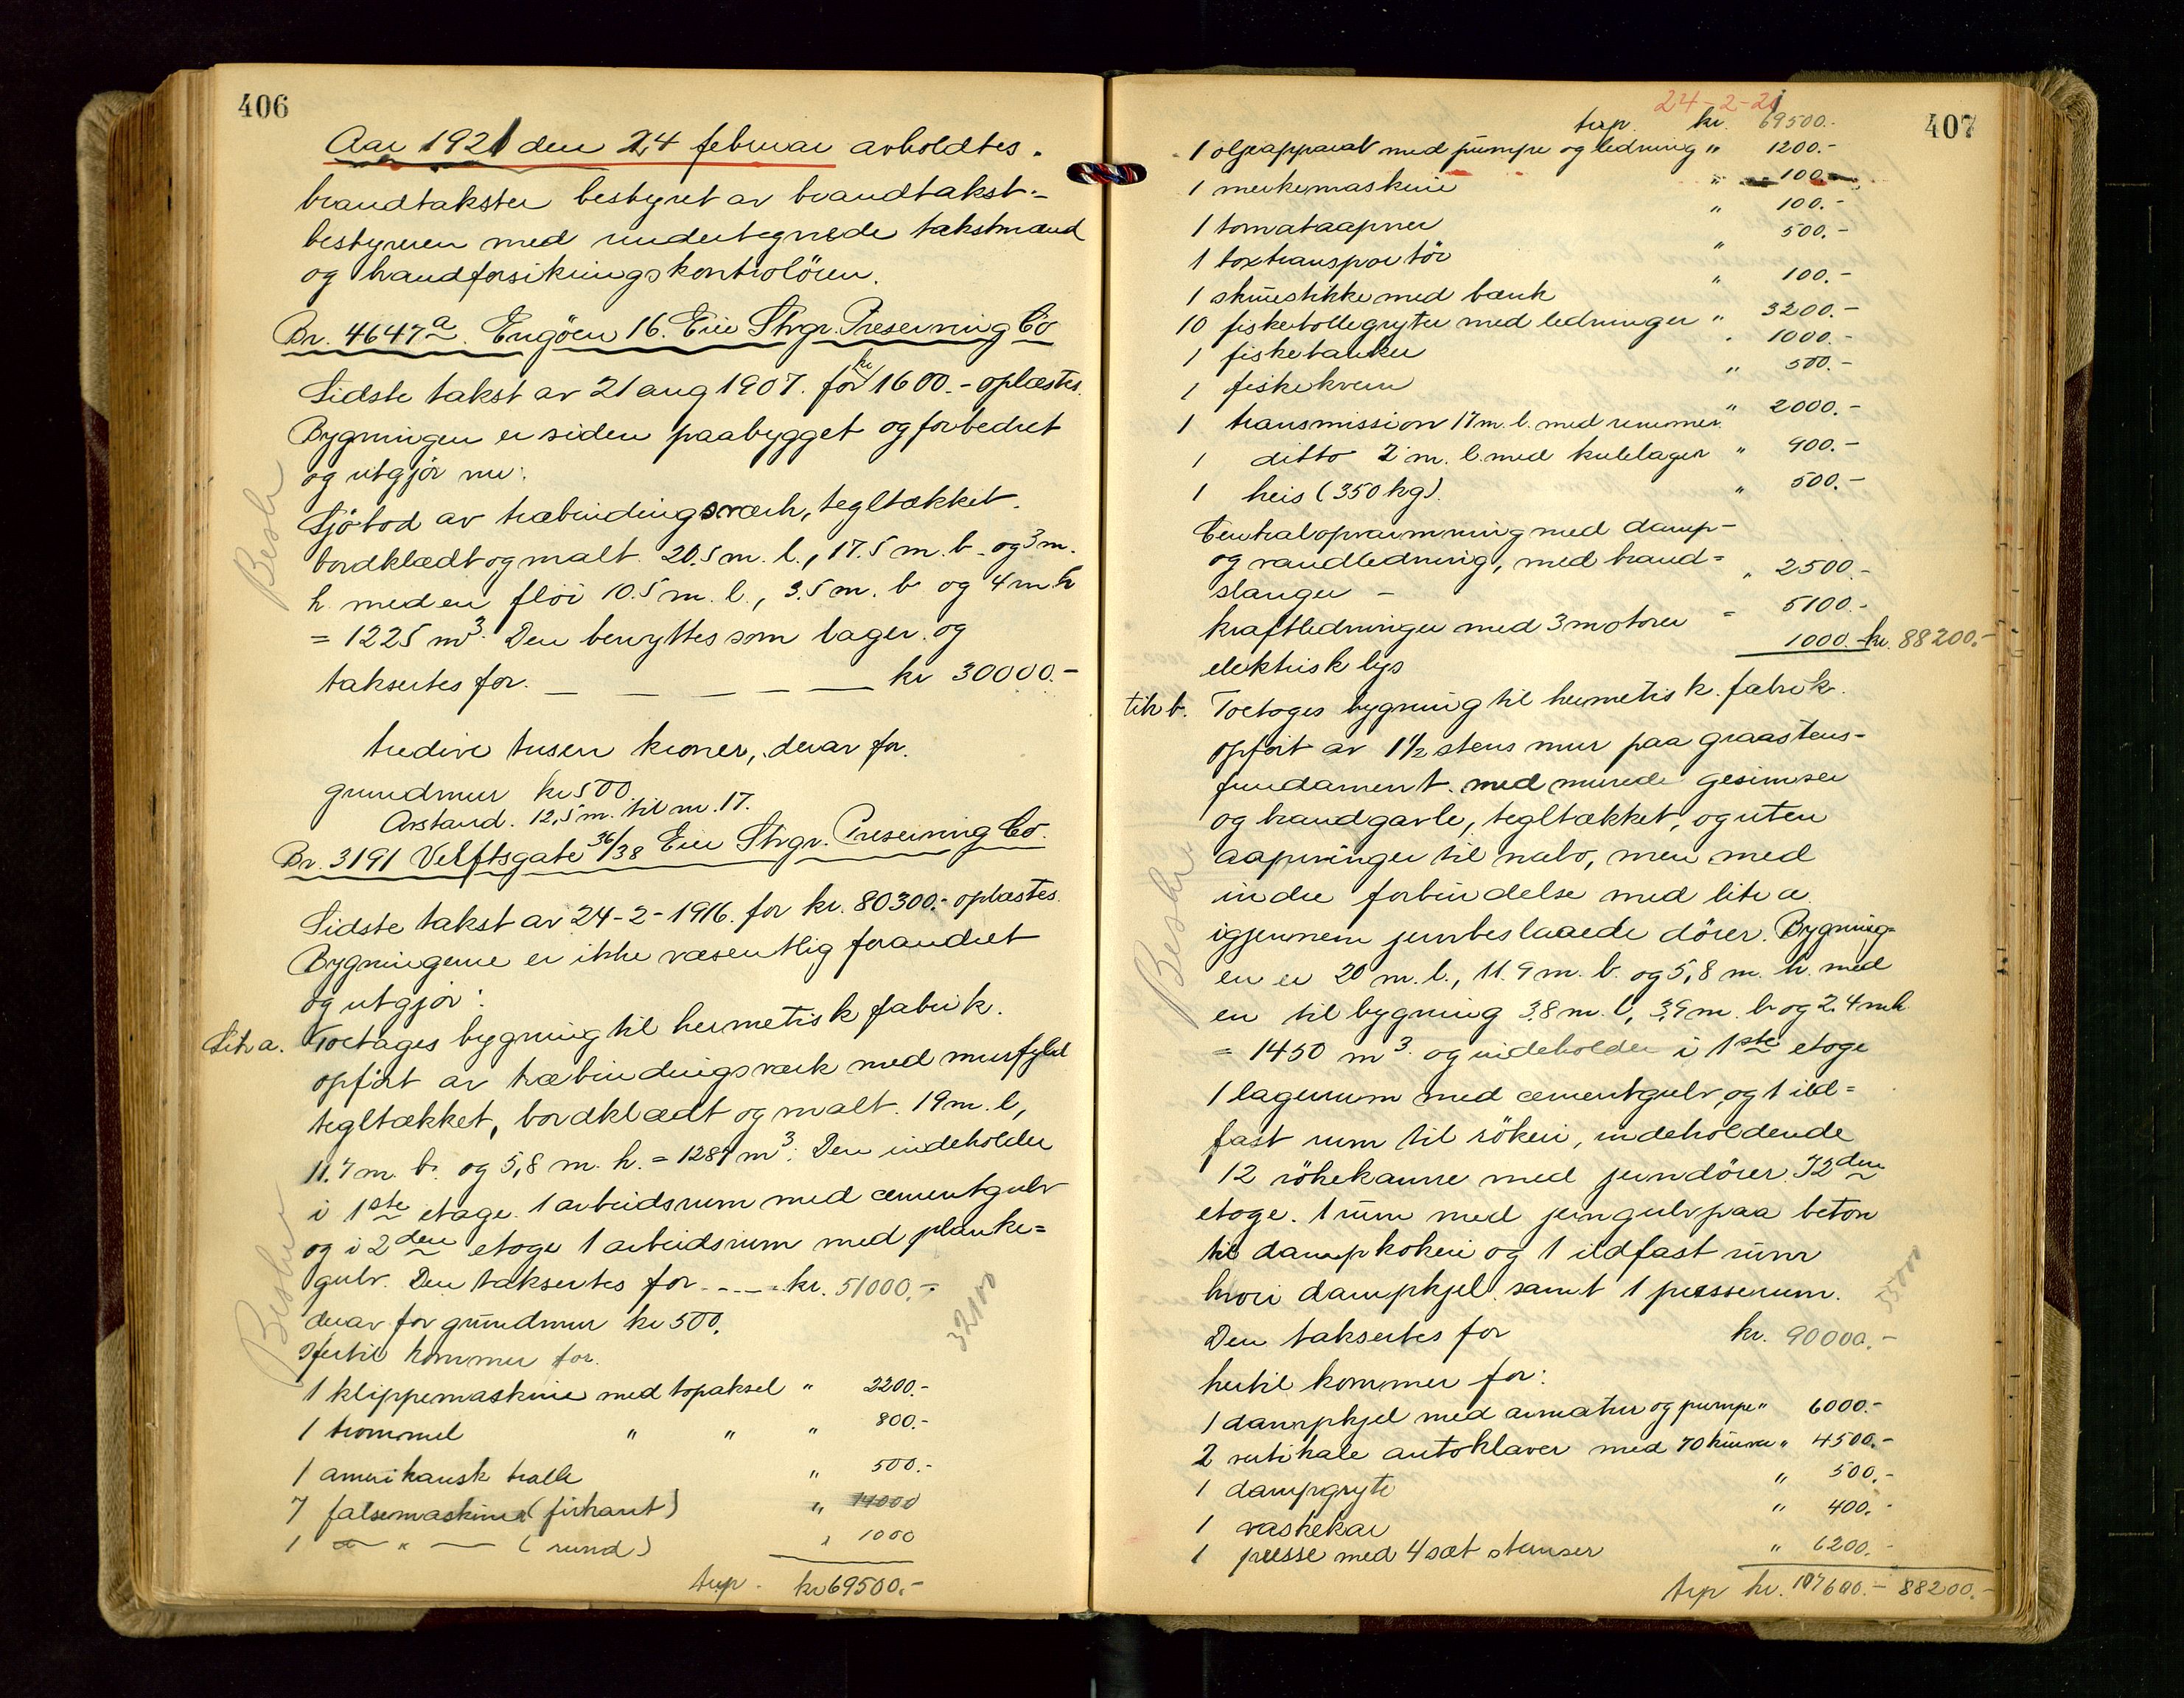 406
Aar 1921 den 24 februar avholdtes.
brandtakster bestyret av brandtakst-
bestyreren med undertegnede takstmænd
og brandforsikringskontroløren.
Br. 4647a. Engøen 16. Eier Stvgr. Preserving Co
Sidste takst av 21 aug 1907. for kr 1600.- oplæstes.
Bygningen er siden paabygget og forbedret
og utgjør nu:
Besk
Sjøbod av træbindingsverk, tegltækket.
bordklædt og malt. 20.5 m. l., 17.5 m. b. og 3 m.
h. med en fløi 10.5 m. l., 3.5 m. b og 4 m h
= 1225 m3. Den benyttes som lager og
taksertes for. — — — — — kr 30000.-
tredive tusen kroner, derav for.
grundmur kr 500
Avstand. 12,5 m. til nr. 17.
Br. 3191 Verftsgate 36/38 Eier Stvgr. Preserving Co.
Sidste takst av 24-2-1916. for kr. 80300.- oplæstes.
Bygningerne er ikke væsentlig forandret
og utgjør:
Litr a. Toetages bygning til hermetisk fabrik.
opført av træbindingsverk med murfyld
tegltækket, bordklædt og malt. 19 m. l,
11.7 m. b. og 5,8 m. h. = 1287 m3. Den indeholder
i 1ste etage. 1 arbeidsrum med cementgulv
og i 2den etage 1 arbeidsrum med planke=
gulv. Den taksertes for ---- kr. 51000.-
derav for grundmur kr 500.
32100
Hertil kommer for.
1 klippemaskine med topaksel " 2200.-
1 trommel " " " 800.-
1 amerikansk tralle " 500.-
7 falsemaskiner (firkant) " 14000
1 — " — (rund) " 1000
trsp. kr 69500.-
407
24-2-21
trsp. kr. 69500.-
1 oljeapparat med pumpe og ledning " 1200.-
1 merkemaskine " 100.-
" 100.-
1 tomataapner
" 500.-
1 boxtransportør
" 100.-
1 skruestikke med bænk
10 fiskebollegryter med ledninger " 3200.-
1 fiskebanker " 1000.-
1 fiskekvern " 500.-
1 transmission 17 m. l. med remmer. " 2000.-
1 ditto 2 m. l. med kulelager " 900.-
1 heis (350 kg). " 500.-
Centralopvarmning med damp-
og vandledning, med brand=
slanger - " 2500.-
kraftledninger med 3 motorer " 5100.-
elektrisk lys 1000.- kr. 88200.-
Litr b. Toetages bygning til hermetisk. fabrik.
opført av 1 1/2 stens mur paa graastens-
fundament. med murede gesimser
og brandgavle, tegltækket, og uten
aapninger til nabo, men med
indre forbindelse med litr a
igjennem jernbeslaaede dører. Bygning-
en er 20 m. l., 11.9 m. b. og 5,8 m. h. med
en tilbygning 3.8 m. l, 3,9 m. b og 2.4 m h
= 1450 m3. og indeholder i 1ste etage
1 lagerrum med cementgulv, og 1 ild=
fast rum til røkeri, indeholdende
12 røkekamre med jerndører. I 2den
etage. 1 rum med jerngulv paa beton
til dampkokeri og 1 ildfast rum
hvori dampkjel samt 1 presserum.
Den taksertes for kr. 90000.-
hertil kommer for:
1 dampkjel med armatur og pumpe " 6000.-
2 vertikale autoklaver med 70 kurver " 4500.-
1 dampgryte " 500.-
1 vaskekar " 400.-
1 presse med 4 sæt stanser " 6200.-
trsp kr. 107600.- 88200.-